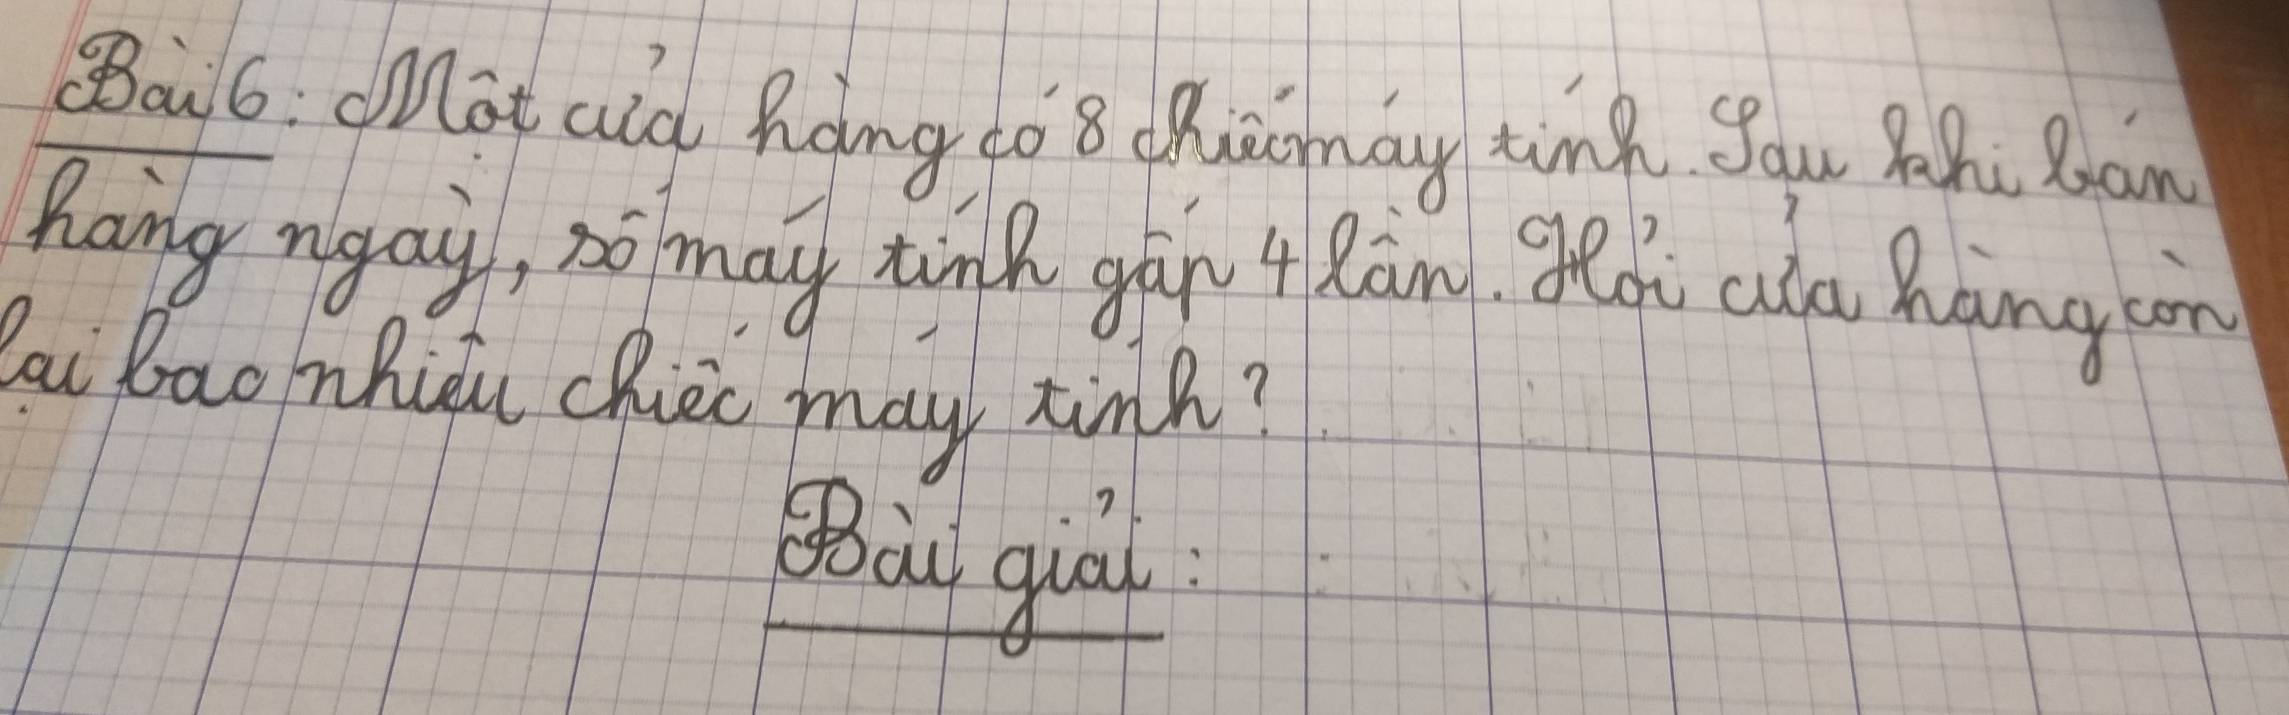 Bài 6: Một cửa hàng có 8 chiếc máy tính. Sau khi bán
hàng ngày, số máy tính gấp 4 lần. Hỏi cửa hàng còn
lại bao nhiêu chiếc máy tính?
Bài giải: